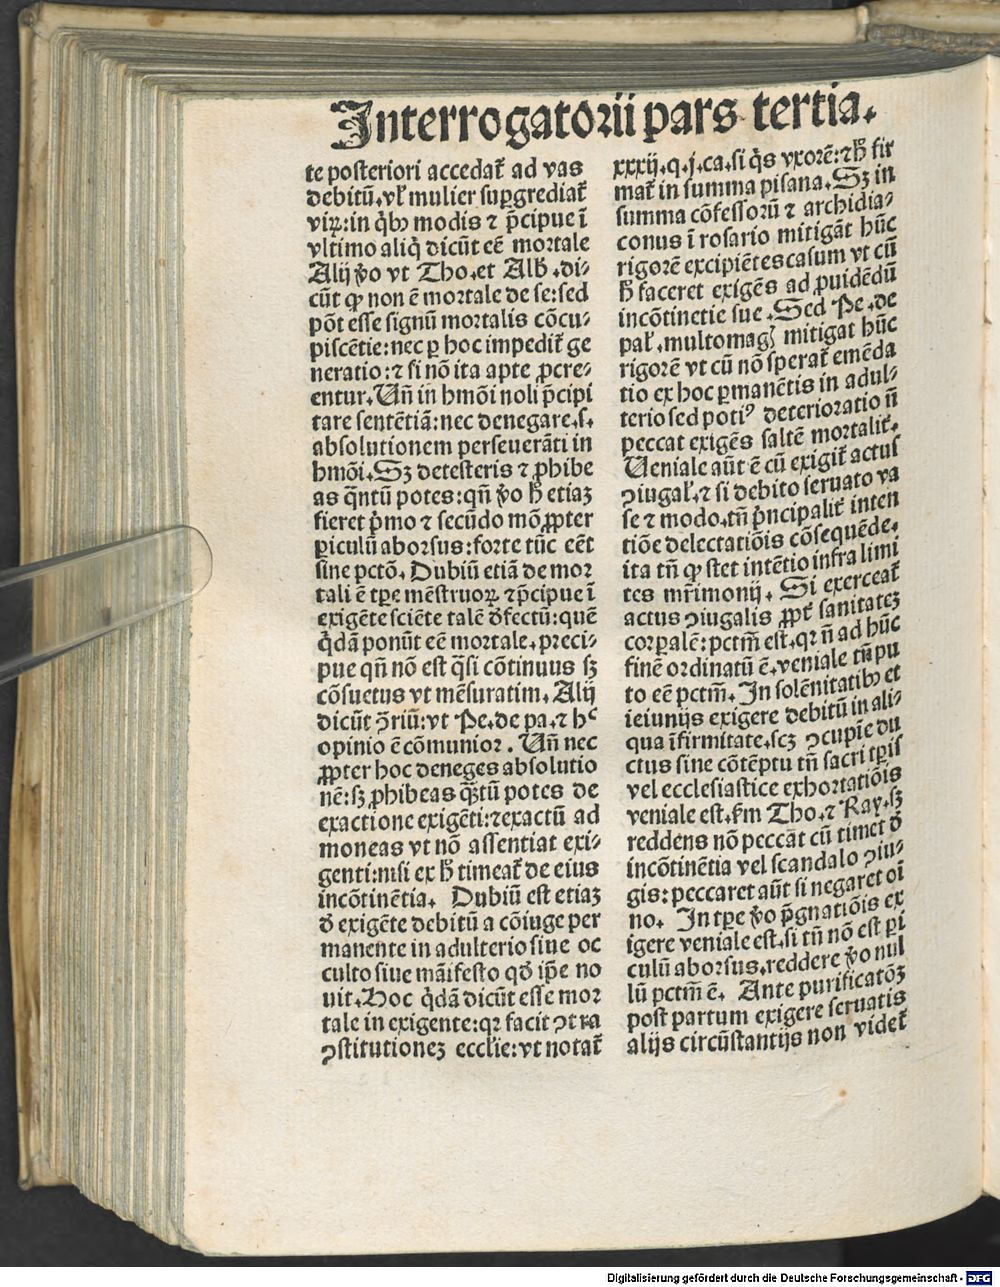 Interrogatorii pars tertia.
te posteriori accedat᷑ ad vas
debitū.vl᷑ mulier sup̱grediat᷑
viꝝ:in q̄bꝰ modis ⁊ p̄cipue ī
vltimo aliq̄ dicūt eē mortale
Alij v̄o vt Tho.et Alb̄.di⸗
cūt ꝙ non ē mortale de se:sed
pōt esse signū mortalis cōcu⸗
piscētie:nec ꝑ hoc impedit᷑ ge
neratio:⁊ si nō ita apte ꝓcre⸗
entur.Vn̄ in hmōi noli p̄cipi
tare sentētiā:nec denegare.s.
absolutionem perseuerāti in
hmōi.Sꝫ detesteris ⁊ ꝓhibe
as q̄ntū potes:qn̄ v̄o h̄ etiaꝫ
fieret p̄mo ⁊ secūdo mō ꝓpter
ꝑiculū aborsus:forte tūc eēt
sine pctō. Dubiū etiā de mor
tali ē tꝑe mēstruoꝝ ⁊p̄cipue ī
exigēte sciēte talē d̄fectū:quē
q̄dā ponūt eē mortale.preci⸗
pue qn̄ nō est q̄si cōtinuus sꝫ
cōsuetus vt mēsuratim. Alij
dicūt ꝯ̄riū:vt Pe.de pa.⁊ hᶜ
opinio ē cōmunior. Vn̄ nec
ꝓpter hoc deneges absolutio
nē:sꝫ ꝓhibeas q̄ꝫtū potes de
exactione exigēti:⁊exactū ad
moneas vt nō assentiat exi⸗
genti:nisi ex h̄ timeat᷑ de eius
incōtinētia. Dubiū est etiaꝫ
d̄ exigēte debitū a cōiuge per
manente in adulterio siue oc
culto siue māifesto qd̄ ip̄e no
uit.Hoc q̄dā dicūt esse mor
tale in exigente:qꝛ facit ꝯtra
ꝯstitutioneꝫ eccl᷑ie:vt notat᷑
xxxij.q.j.ca.si q̄s vxorē:⁊h̄ fir
mat᷑ in summa pisana.Sꝫ in
summa cōfessorū ⁊ archidia⸗
conus ī rosario mitigāt hūc
rigorē excipiētes casum vt cū
h̄ faceret exigēs ad ꝓuidēdū
incōtinetie sue.Sed Pe.de
pal᷑.multomagꝭ mitigat hūc
rigorē vt cū nō sperat᷑ emēda
tio ex hoc ꝑmanētis in adul⸗
terio sed potiꝰ deterioratio n̄
peccat exigēs saltē mortalit᷑.
Veniale aūt ē cū exigit᷑ actus
ꝯiugal᷑.⁊ si debito seruato va
se ⁊ modo.tn̄ p̄ncipalit᷑ inten
tiōe delectatiōis cōsequēde.
ita tn̄ ꝙ stet intētio infra limi
tes mr̄imonij. Si exerceat᷑
actus ꝯiugalis ꝓpt᷑ sanitateꝫ
corꝑalē:pctm̄ est.qꝛ n̄ ad hūc
finē ordinatū ē.veniale tn̄ pu
to eē pctm̄. In solēnitatibꝰ et
ieiunijs exigere debitū in ali⸗
qua īfirmitate.scꝫ ꝯcupīe du
ctus sine cōtēptu tn̄ sacri tꝑis
vel ecclesiastice exhortatiōis
veniale est.ẜm Tho.⁊ Ray.sꝫ
reddens nō peccāt cū timet d̄
incōtinētia vel scandalo ꝯiu⸗
gis:peccaret aūt si negaret oī
no. In tꝑe v̄o p̄gnatiōis ex
igere veniale est.si tn̄ nō est ꝑi
culū aborsus.reddere v̄o nul
lū pctm̄ ē. Ante purificatōꝫ
post partum exigere seruatis
alijs circūstantijs non videt᷑
Digitalisierung gefördert durch die Deutsche Forschungsgemeinschaft - DFG